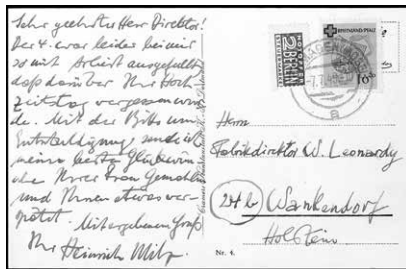 Sehr geehrter Herr Direktor!
Der 4. war leider bei mir
so mit Arbeit ausgefüllt
daß darüber Ihr Hoch-
zeitstag vergessen wur-
de. Mit der Bitte um
Entschuldigung, sende ich
meine besten Glückwün-
sche Ihrer Frau Gemahlin
und Ihnen etwas ver-
spätet. Mit ergebenem Gruß
Ihr Heinrich
Nr. 4.
2 BERLIN
NOTOPFER
STEUERMARKE
RHEINLAND-PFALZ
Herrn
Fabrikdirektor W. Leonardy
24b Wankendorf
Holstein